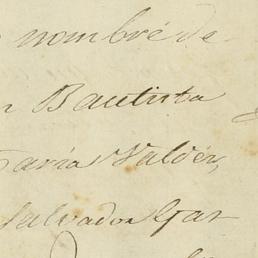 nombre de
Bautista
Maria Valdés,
Salvador Gar